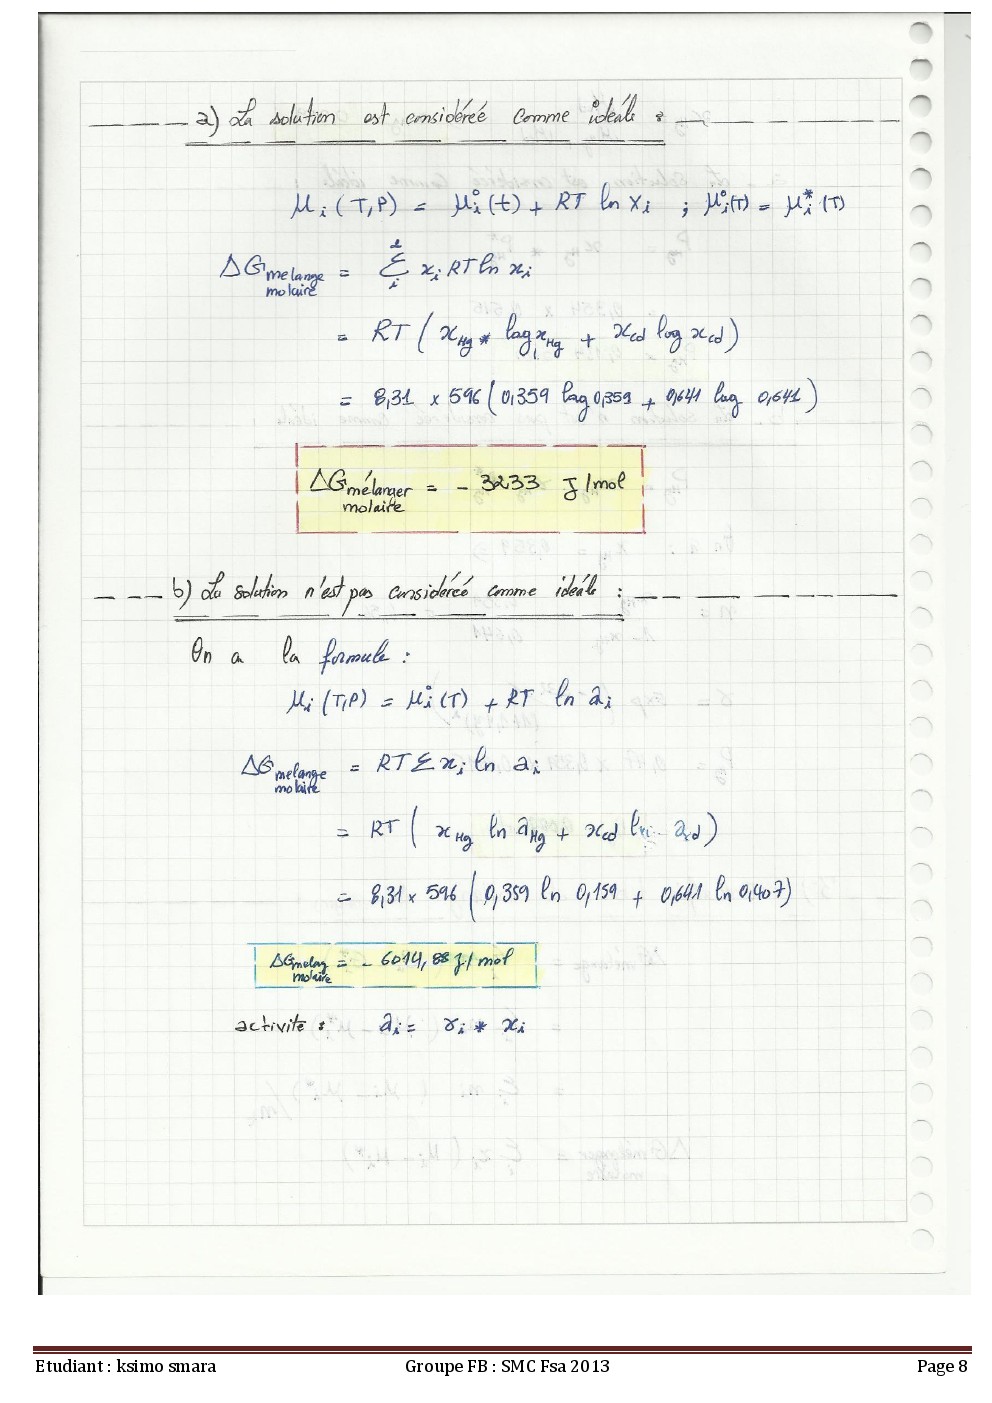 a) La solution est considéreé comme idéale :
μi (T,P) = μ°i (t) + RT ln Xi ; μ°i(T) = μ*i (T)
ΔG melange molaire = Σ xi RT ln xi
= RT ( xHg * log xHg + xcd log xcd )
= 8,31 × 596 ( 0,359 log 0,359 + 0,641 log 0,641 )
ΔG mélanger molaire = - 3233 J/mol
b) La solution n'est pas considéreé comme idéale :
On a la formule :
μi (T,P) = μ°i (T) + RT ln ai
ΔG melange molaire = RT Σ xi ln ai
= RT ( xHg ln aHg + xcd ln acd )
= 8,31 × 596 ( 0,359 ln 0,159 + 0,641 ln 0,407 )
ΔG melag molaire = - 6014,88 J/mol
activité : ai = γi * xi
Etudiant : ksimo smara Groupe FB : SMC Fsa 2013 Page 8